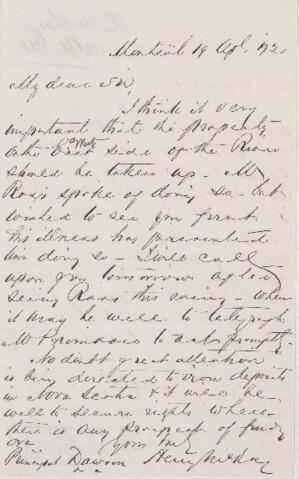 Montreal 19 Apl. 1872
My dear Sir,
I think it very
important that the property
on the East & West side of the River
should be taken up - Mr
Ross spoke of doing so - but
wished to see you first
his illness has prevented
him doing so - I will call
upon you tomorrow after
seeing Ross this evening when
it may be well to telegraph
Mr to act promptly -
No doubt great attention
is being directed to iron deposits
in Nova Scotia & it will be
well to secure rights where
there is any prospect of finding
ore Yours truly
Principal Dawson Henry McKay